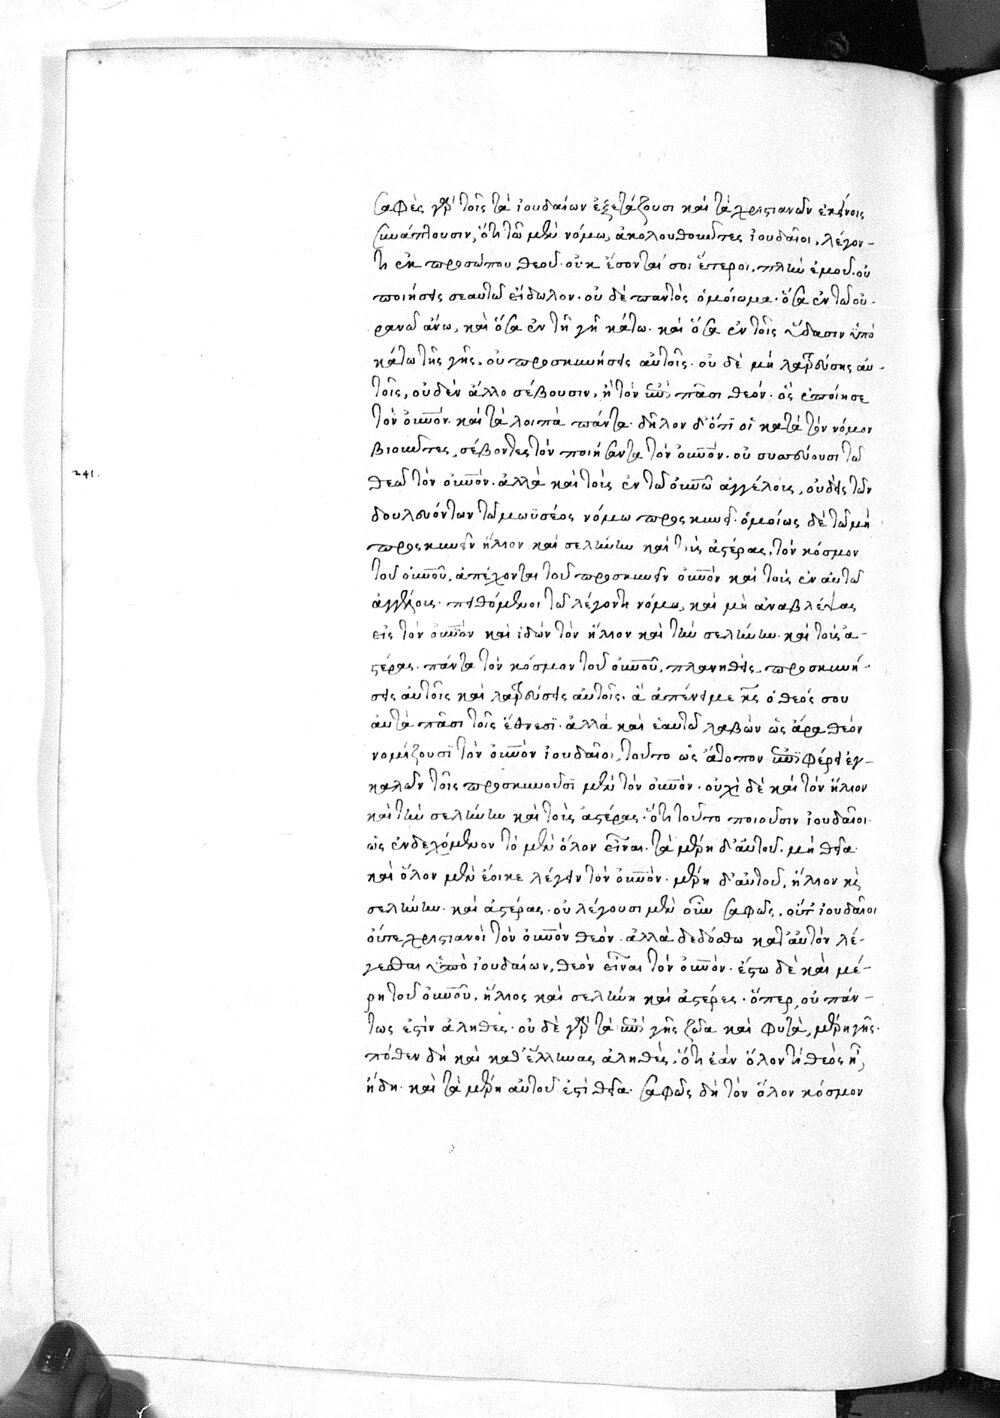 σαφὲς γὰρ τοῖς τὰ ἰουδαίων ἐξετάζουσι καὶ τὰ χριστιανῶν ἐκείνοις
συνάπτουσιν, ὅτι τῷ μὲν νόμω, ἀκολουθοῦντες ἰουδαῖοι, λέγον-
τι ἐκ προσώπου θεοῦ· οὐκ ἔσονταί σοι ἕτεροι, πλὴν ἐμοῦ. οὐ
ποιήσεις σεαυτῷ εἴδωλον· οὐ δὲ παντὸς ὁμοίωμα· ὅσα ἐν τῷ οὐ-
ρανῷ ἄνω, καὶ ὅσα ἐν τῇ γῇ κάτω· καὶ ὅσα ἐν τοῖς ὕδασιν ὑπο
κάτω τῆς γῆς. οὐ προσκυνήσεις αὐτοῖς· οὐ δὲ μὴ λατρεύσης αὐ-
τοῖς, οὐδὲν ἄλλο σέβουσιν, ἢ τὸν ἐπὶ πᾶσι θεόν· ὃς ἐποίησε
τὸν οὐνὸν· καὶ τὰ λοιπὰ πάντα· δῆλον δ' ὅτι οἱ κατὰ τὸν νόμον
βιοῦντες, σέβοντες τὸν ποιήσαντα τὸν οὐνὸν· οὐ συσσέβουσι τῷ
θεῷ τὸν οὐνὸν· ἀλλὰ καὶ τοὺς ἐν τῷ οὐνῷ ἀγγέλους, οὐδεὶς τῶν
δουλευόντων τῷ μωϋσέος νόμω προσκυνεῖ· ὁμοίως δὲ τῷ μὴ
προσκυνεῖν ἥλιον καὶ σελήνην καὶ τοὺς ἀστέρας, τὸν κόσμον
τοῦ οὐνοῦ, ἀπέχονται τοῦ προσκυνεῖν οὐνὸν καὶ τοὺς ἐν αὐτῷ
ἀγγέλους· πειθόμενοι τῷ λέγοντι νόμω, καὶ μὴ ἀναβλέψας
εἰς τὸν οὐνὸν καὶ ἰδὼν τὸν ἥλιον καὶ τὴν σελήνην· καὶ τοὺς ἀ-
στέρας· πάντα τὸν κόσμον τοῦ οὐνοῦ, πλανηθεὶς προσκυνή-
σεις αὐτοῖς καὶ λατρεύσεις αὐτοῖς, ἃ ἀπένειμε κς ὁ θεός σου
αὐτὰ πᾶσι τοῖς ἔθνεσι· ἀλλὰ καὶ ἑαυτῷ λαβὼν ὡς ἄρα θεὸν
νομίζουσι τὸν οὐνὸν ἰουδαῖοι, τοῦτο ὡς ἄτοπον ἐπιφέρει ἐγ-
καλῶν τοῖς προσκυνοῦσι μὲν τὸν οὐνὸν· οὐχὶ δὲ καὶ τὸν ἥλιον
καὶ τὴν σελήνην καὶ τοὺς ἀστέρας· ὅτι τοῦτο ποιοῦσιν ἰουδαῖοι
ὡς ἐνδεχόμενον τὸ μὲν ὅλον εἶναι· τὰ μέρη δ' αὐτοῦ· μὴ θεῖα·
καὶ ὅλον μὲν ἔοικε λέγειν τὸν οὐνὸν· μέρη δ' αὐτοῦ, ἥλιον κὶ
σελήνην· καὶ ἀστέρας· οὐ λέγουσι μὲν οὖν σαφῶς, οὔτ' ἰουδαῖοι
οὔτε χριστιανοὶ τὸν οὐνὸν θεόν· ἀλλὰ δεδόσθω κατ' αὐτὸν λέ-
γεσθαι ὑπὸ ἰουδαίων, θεὸν εἶναι τὸν οὐνὸν· ἔστω δὲ καὶ μέ-
ρη τοῦ οὐνοῦ, ἥλιος καὶ σελήνη καὶ ἀστέρες· ὅπερ, οὐ πάν-
τως ἐστὶν ἀληθές· οὐ δὲ γὰρ τὰ ἐπὶ γῆς ζῶα καὶ φυτὰ, μέρη γῆς·
πόθεν δὴ καὶ καθ' ἕλληνας ἀληθὲς, ὅτι ἐὰν ὅλον τι θεὸς ᾖ,
ἤδη· καὶ τὰ μέρη αὐτοῦ ἐστὶ θεῖα· σαφῶς δὴ τὸν ὅλον κόσμον
241.